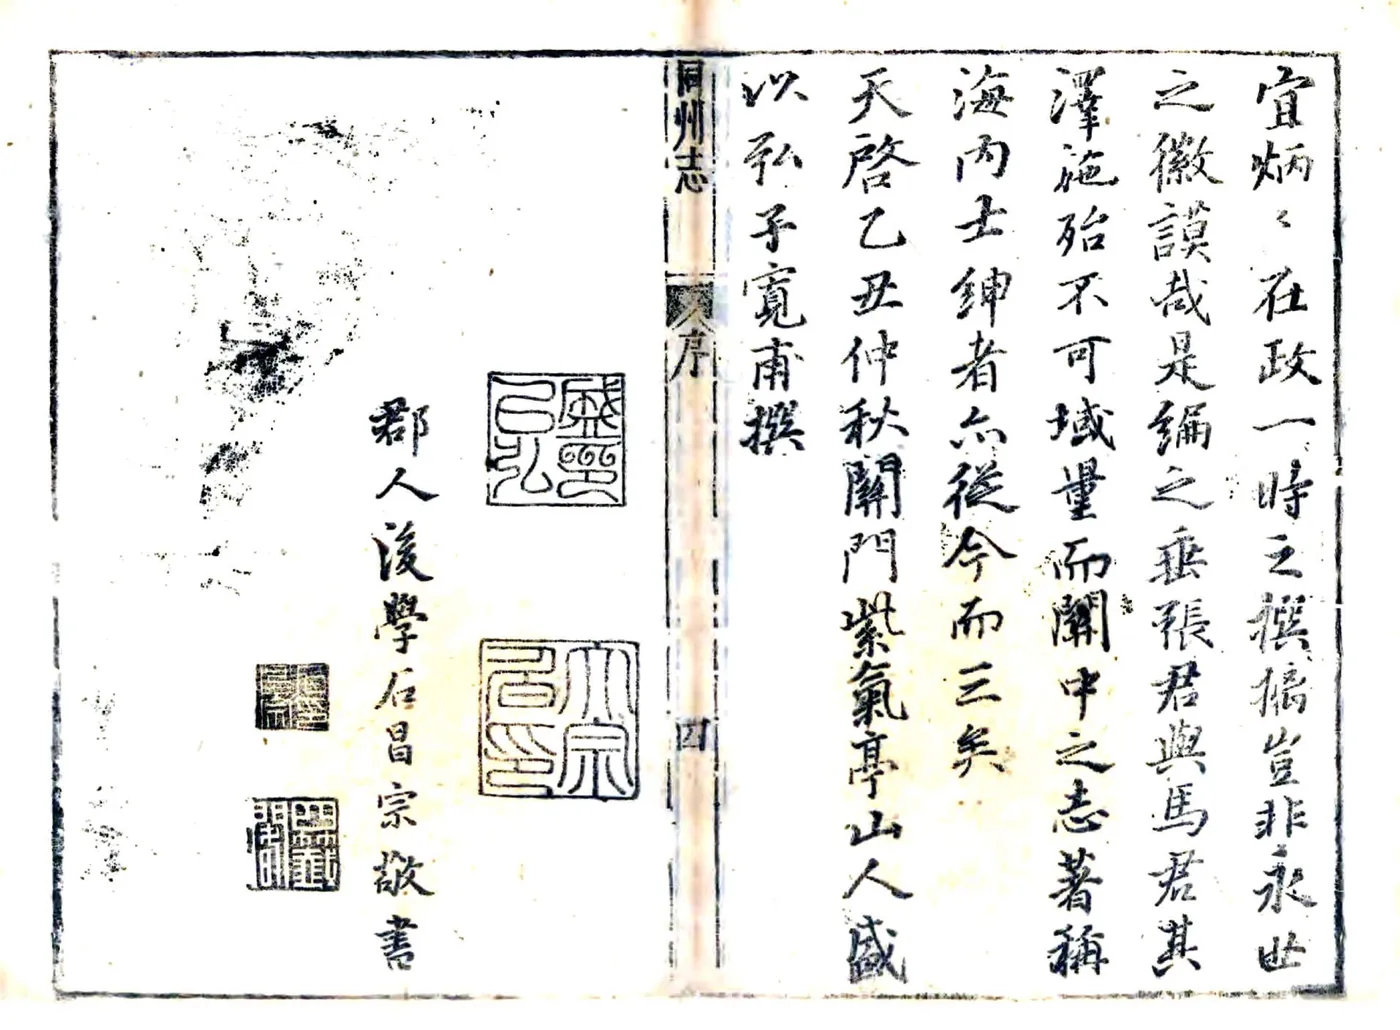 宜炳〻在政一時之撰摛豈非永世
之徽謨哉是編之垂張君與馬君其
澤施殆不可域量而關中之志著稱
海內士紳者亦從今而三矣
天啓乙丑仲秋關門紫氣亭山人盛
以弘子寬甫撰
同州志
序
四
郡人後學石昌宗敬書
大宗